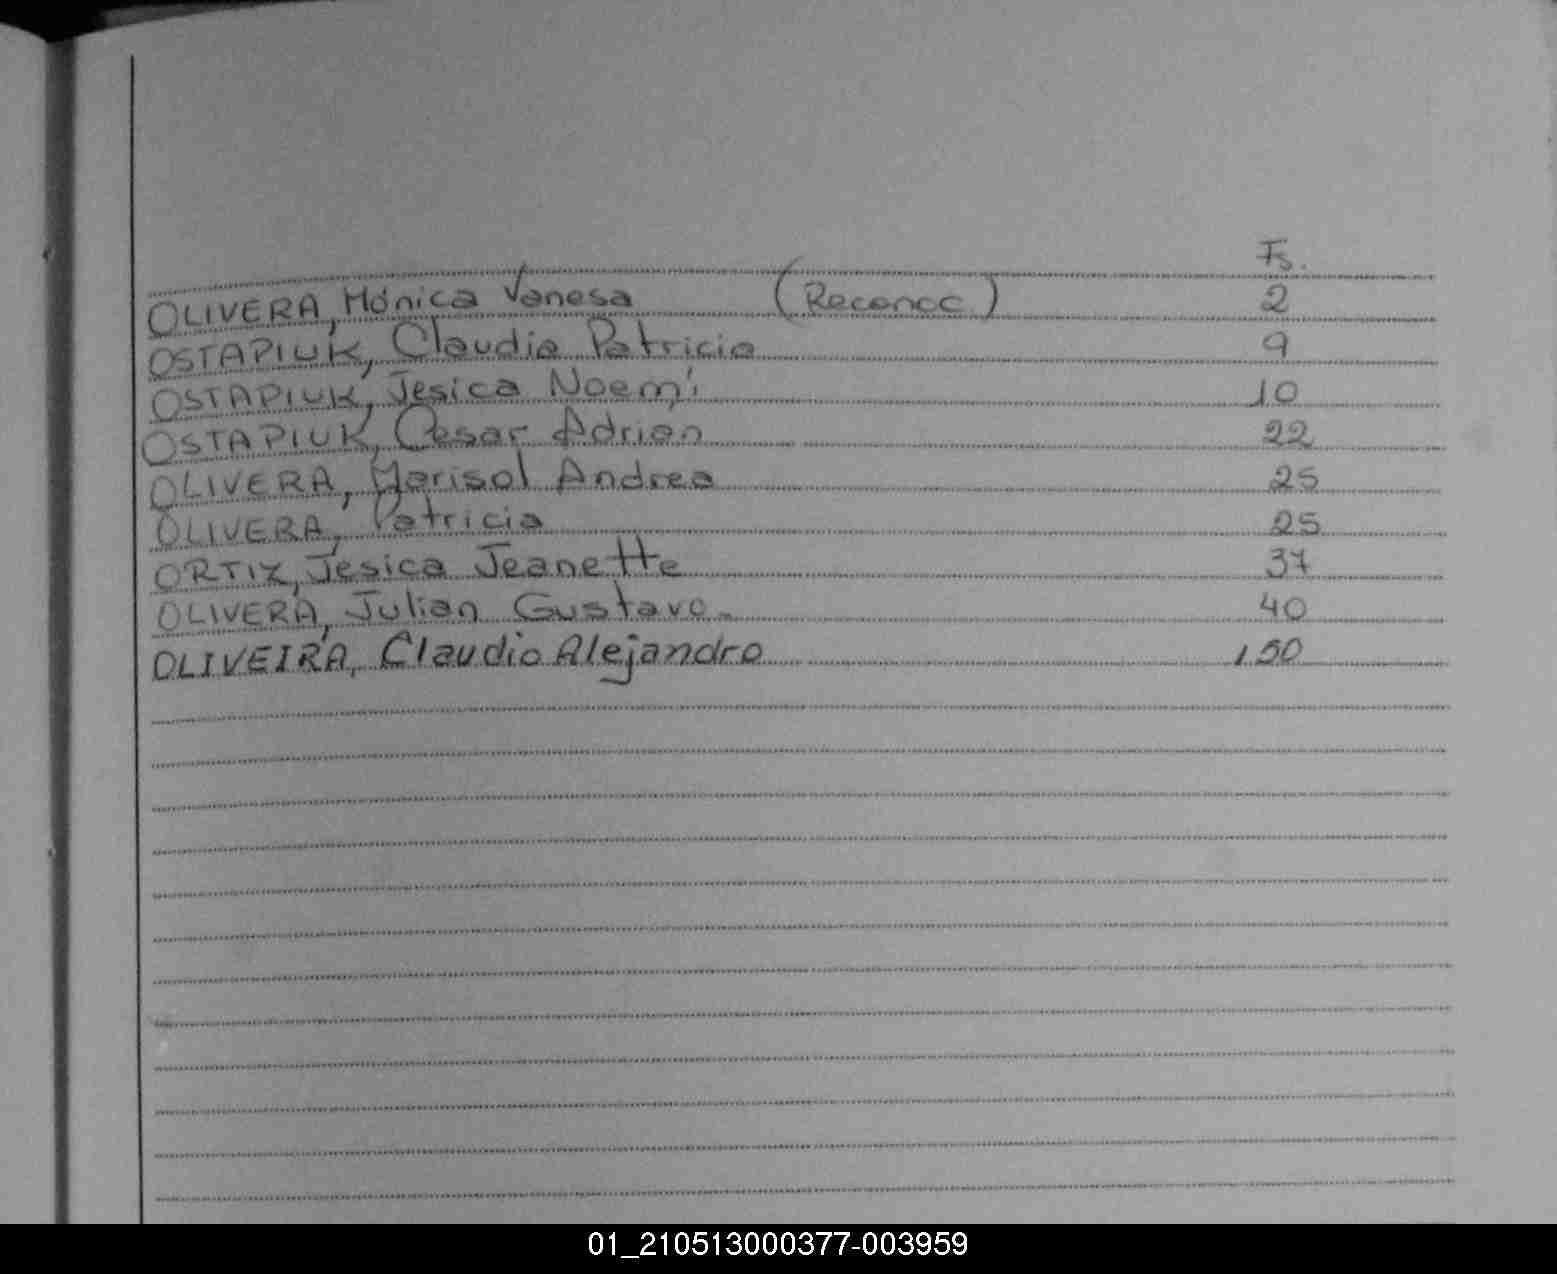 Fs.
OLIVERA, Mónica Vanesa (Reconoc.) 2
OSTAPIUK, Claudia Patricia 9
OSTAPIUK, Jesica Noemí 10
OSTAPIUK, Cesar Adrian 22
OLIVERA, Marisol Andrea 25
OLIVERA, Patricia 25
ORTIZ, Jesica Jeanette 37
OLIVERA, Julian Gustavo.- 40
OLIVEIRA, Claudio Alejandro 150
01_210513000377-003959